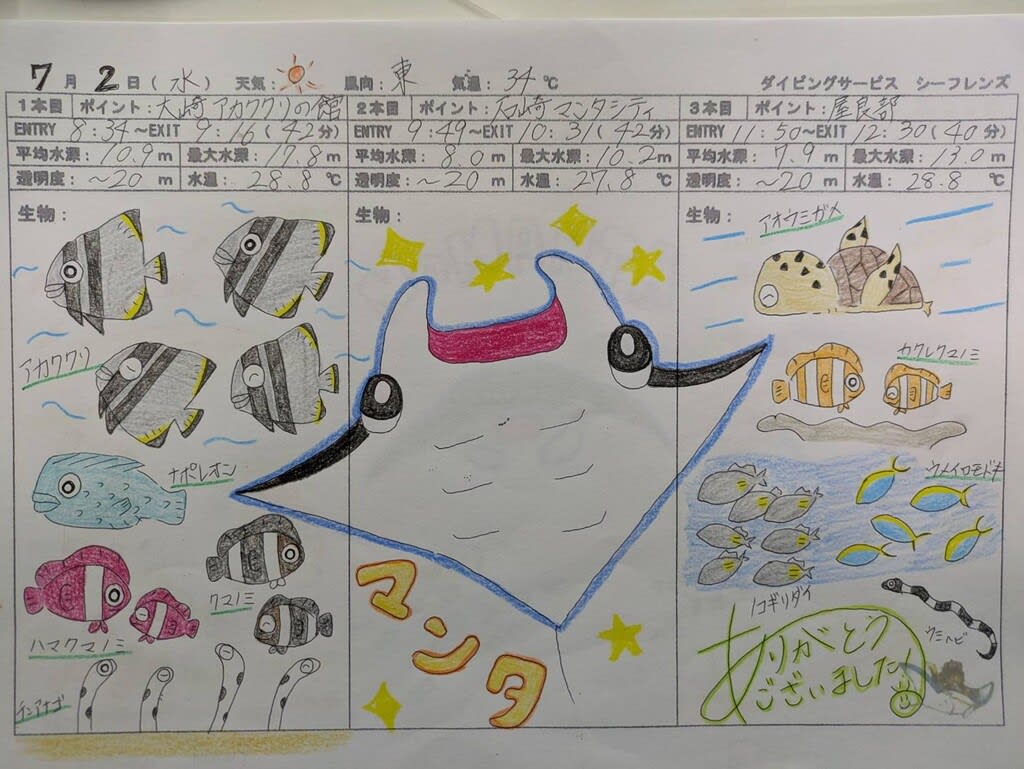 7月2日(水) 天気: 風向:東 気温:34℃ ダイビングサービス シーフレンズ
1本目 ポイント:大崎アカククリの館
ENTRY 8:34~EXIT 9:16(42分)
平均水深:10.9m 最大水深:17.8m
透明度:~20m 水温:28.8℃
生物:
アカククリ
ナポレオン
クマノミ
ハマクマノミ
チンアナゴ
2本目 ポイント:石崎マンタシティ
ENTRY 9:49~EXIT 10:31(42分)
平均水深:8.0m 最大水深:10.2m
透明度:~20m 水温:27.8℃
生物:
マンタ
3本目 ポイント:屋良部
ENTRY 11:50~EXIT 12:30(40分)
平均水深:7.9m 最大水深:13.0m
透明度:~20m 水温:28.8℃
生物:
アオウミガメ
カクレクマノミ
ウメイロモドキ
ノコギリダイ
ウミヘビ
ありがとう
ございました!